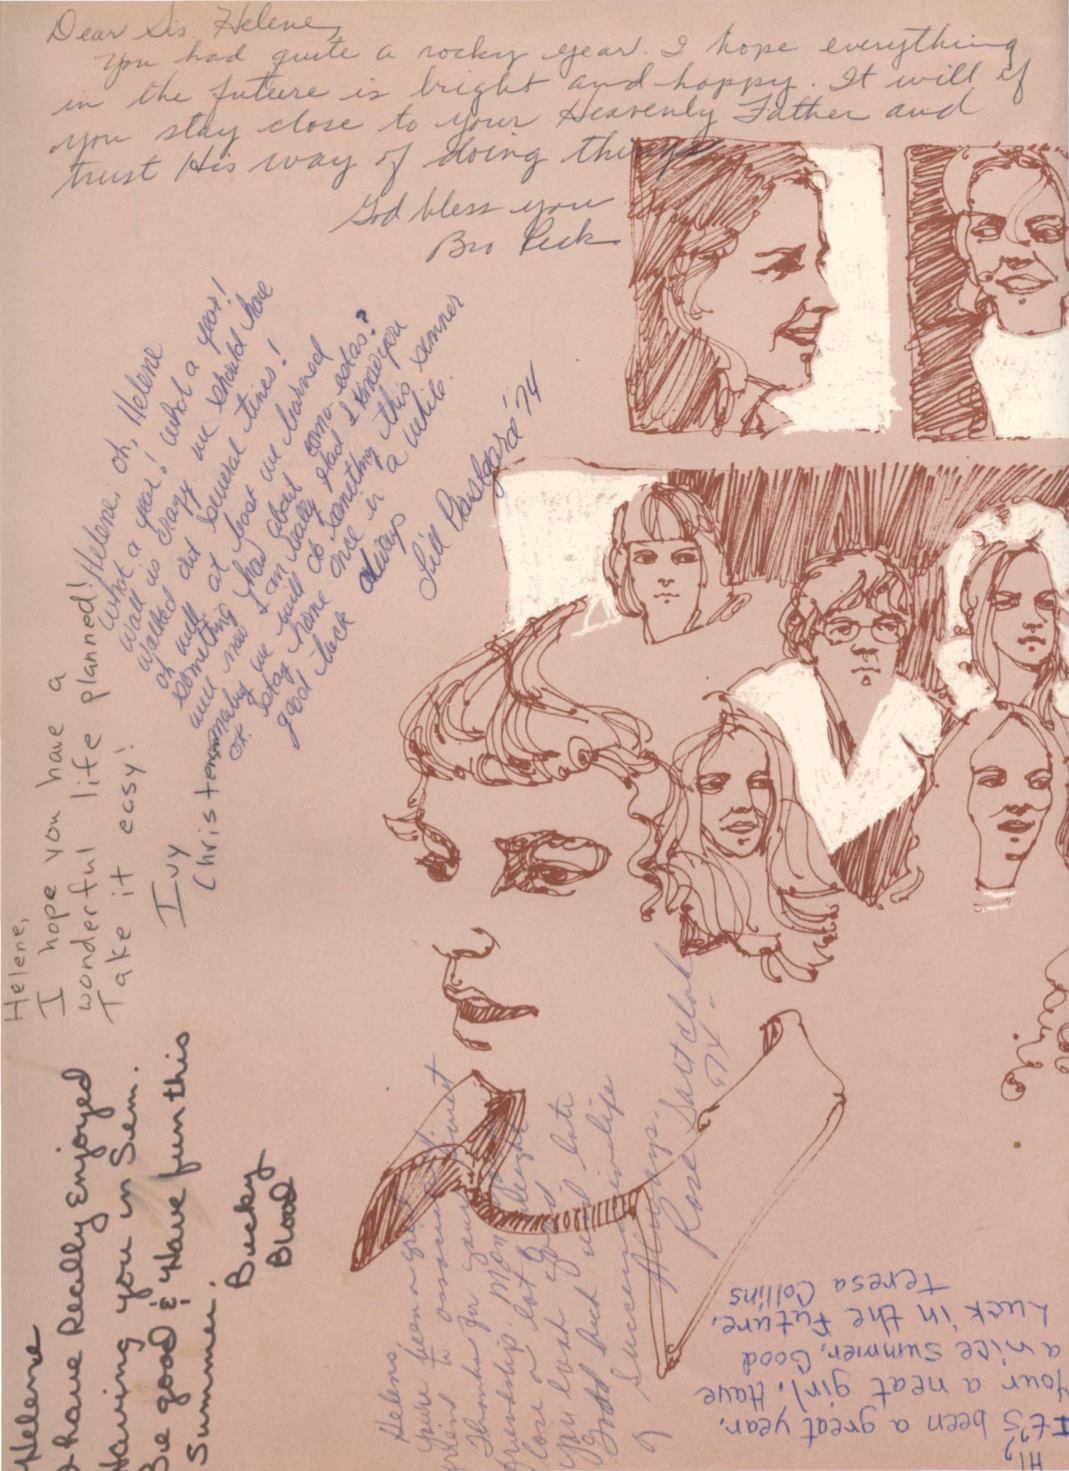 Dear Sis. Helene,
You had quite a rocky year. I hope everything
in the future is bright and happy. It will if
you stay close to your Heavenly Father and
trust His way of doing things
God bless you
Bro Peck
Helene, oh, Helene
what a year! what a year!
Wall is crazy we should have
walked out several times!
oh well at least we learned
something how about como estas?
well now I can really glad I knew you
maybe we will do something this summer
or stay home once in a while.
good luck always
'74
Helene,
I hope you have a
wonderful life planned!
Take it easy!
Ivy
Christensen
Helene
I have Really Enjoyed
Having you in Sem.
Be good & Have fun this
Summer.
Bucky
Blood
Helene,
You've been a great
friend to associate
Thanks for your
friendship.
lose a lot
you
Good luck and
Success in life
Always.
Rose
74-
Hi,
It's been a great year,
Your a neat girl. Have
a nice summer, Good
Luck in the Future.
Teresa Collins